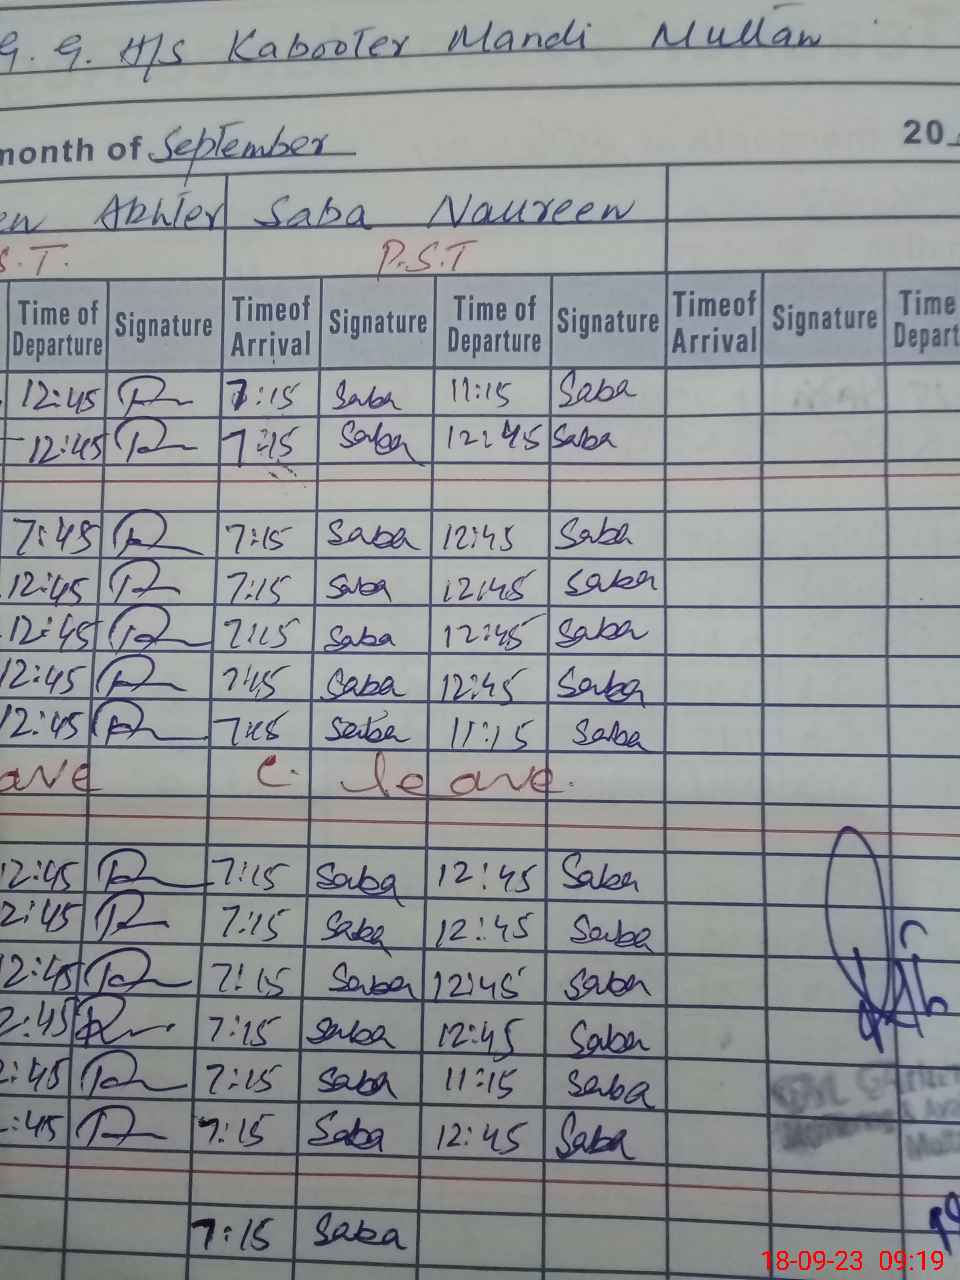 G. G. H/S Kabooter Mandi Multan
month of September 20
en Akhter Saba Naureen
S.T. P.S.T
Time of Departure Signature Timeof Arrival Signature Time of Departure Signature Timeof Arrival Signature Time Depart
12:45 7:15 Saba 11:15 Saba
12:45 7:15 Saba 12:45 Saba
7:45 7:15 Saba 12:45 Saba
12:45 7:15 Saba 12:45 Saba
12:45 7:15 Saba 12:45 Saba
12:45 7:15 Saba 12:45 Saba
12:45 7:15 Saba 11:15 Saba
ave C. leave.
2:45 7:15 Saba 12:45 Saba
2:45 7:15 Saba 12:45 Saba
12:45 7:15 Saba 12:45 Saba
2:45 7:15 Saba 12:45 Saba
2:45 7:15 Saba 11:15 Saba
:45 7:15 Saba 12:45 Saba
7:15 Saba
18-09-23 09:19